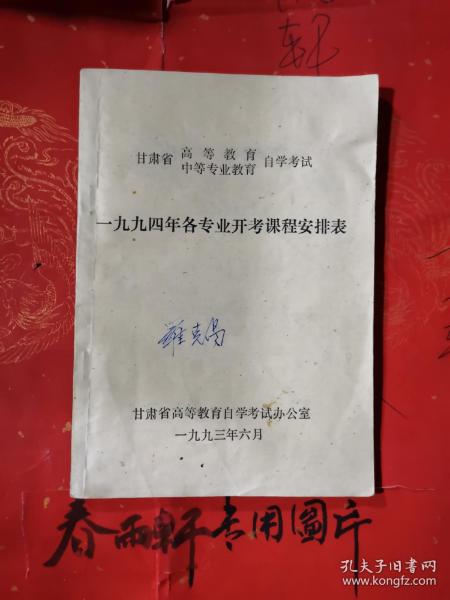 甘肃省 高等教育 自学考试
中等专业教育
一九九四年各专业开考课程安排表
甘肃省高等教育自学考试办公室
一九九三年六月
春雨轩专用图片
孔夫子旧书网
www.kongfz.com